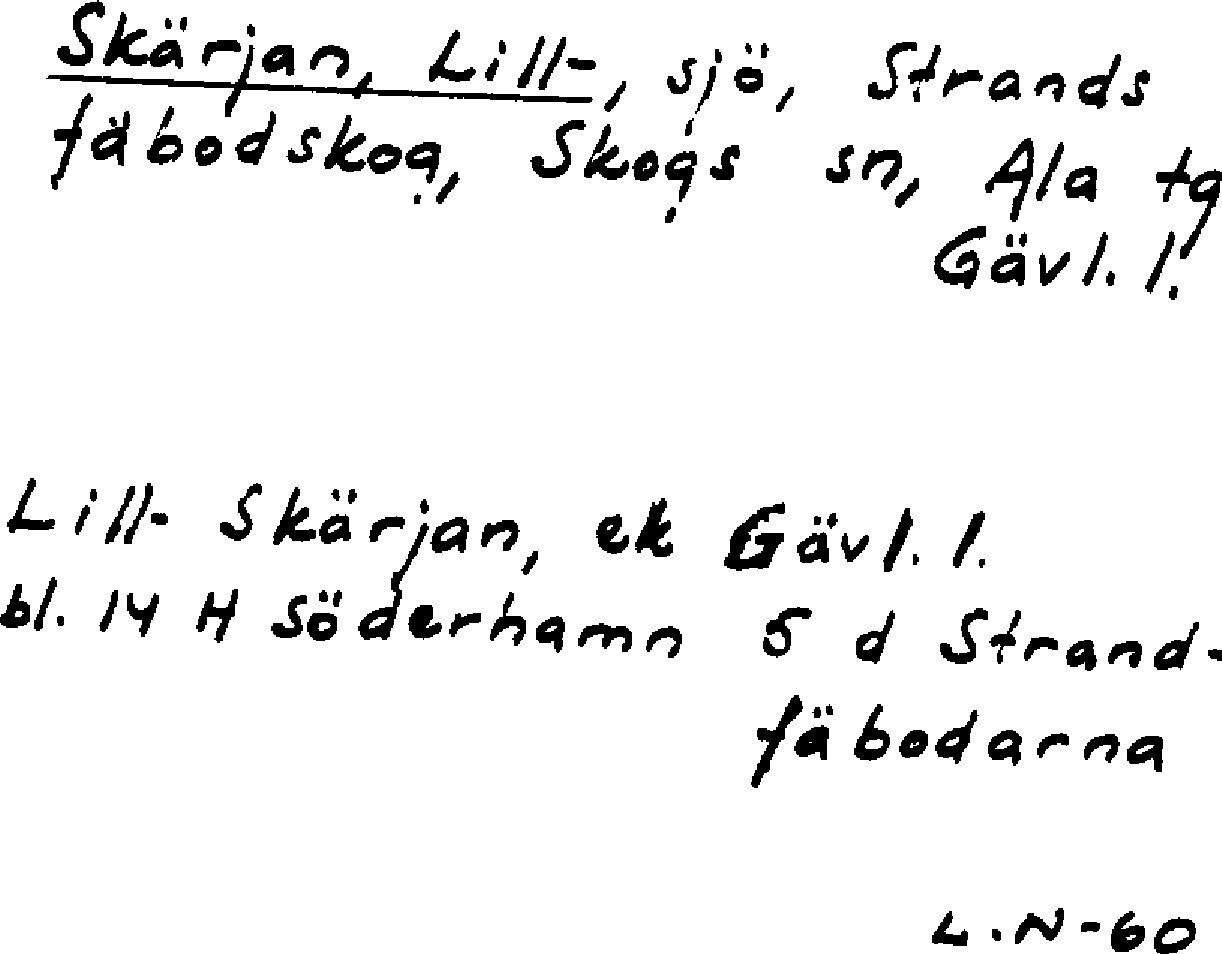 Skärjan, Lill-, sjö, Strands
fäbodskog, Skogs sn, Ala tg
Gävl. l.
Lill- Skärjan, ek Gävl. l.
bl. 14 H Söderhamn 5 d Strand-
fäbodarna
L.N-60